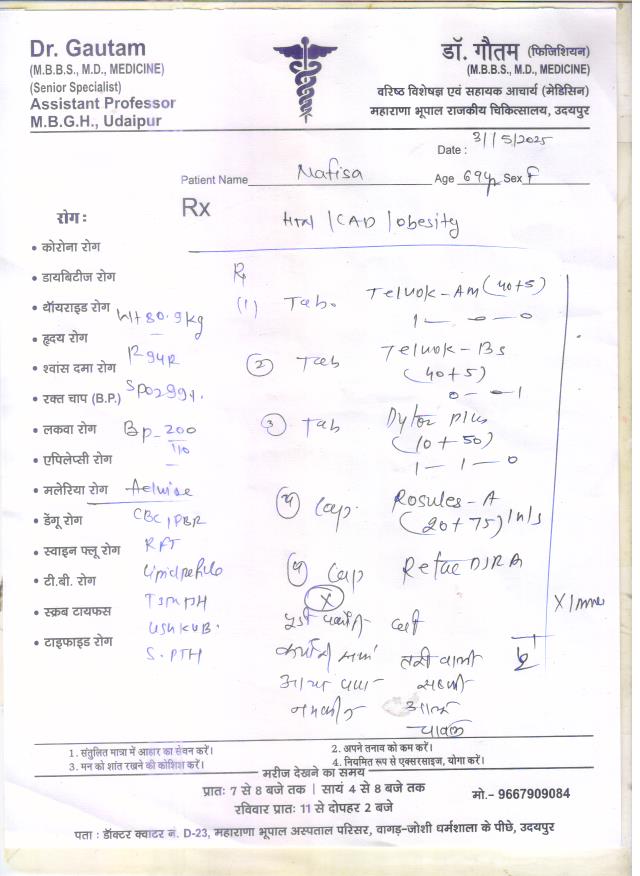 Dr. Gautam
(M.B.B.S., M.D., MEDICINE)
(Senior Specialist)
Assistant Professor
M.B.G.H., Udaipur
डॉ. गौतम (फिजिशियन)
(M.B.B.S., M.D., MEDICINE)
वरिष्ठ विशेषज्ञ एवं सहायक आचार्य (मेडिसिन)
महाराणा भूपाल राजकीय चिकित्सालय, उदयपुर
Date : 31/5/2025
Patient Name Nafisa Age 69yr Sex F
Rx
HTN / CAD / Obesity
रोग :
• कोरोना रोग
• डायबिटीज रोग
• थॉयराइड रोग
• हृदय रोग
• श्वांस दमा रोग
• रक्त चाप (B.P.)
• लकवा रोग
• एपिलेप्सी रोग
• मलेरिया रोग
• डेंगू रोग
• स्वाइन फ्लू रोग
• टी.बी. रोग
• स्क्रब टायफस
• टाइफाइड रोग
Wt 80.9kg
SPO2 99%
BP- 200
110
Advise
CBC, PBR
RFT
Lipid profile
S. PTH
Rx
(1) Tab. Telvok-AM (40+5)
1 — 0 — 0
(2) Tab Telvok-Bs
(40+5)
0 — — 1
(3) Tab Dytor plus
(10+50)
1 — 1 — 0
(4) Cap. Rosules-A
(20+75)
Cap
X
तरी वाली
नमकीन आलू
चावल
1. संतुलित मात्रा में आहार का सेवन करें।
2. अपने तनाव को कम करें।
3. मन को शांत रखने की कोशिश करें।
4. नियमित रूप से एक्सरसाइज, योगा करें।
मरीज देखने का समय
प्रातः 7 से 8 बजे तक | सायं 4 से 8 बजे तक
रविवार प्रातः 11 से दोपहर 2 बजे
मो.- 9667909084
पता : डॉक्टर क्वाटर नं. D-23, महाराणा भूपाल अस्पताल परिसर, वागड़-जोशी धर्मशाला के पीछे, उदयपुर